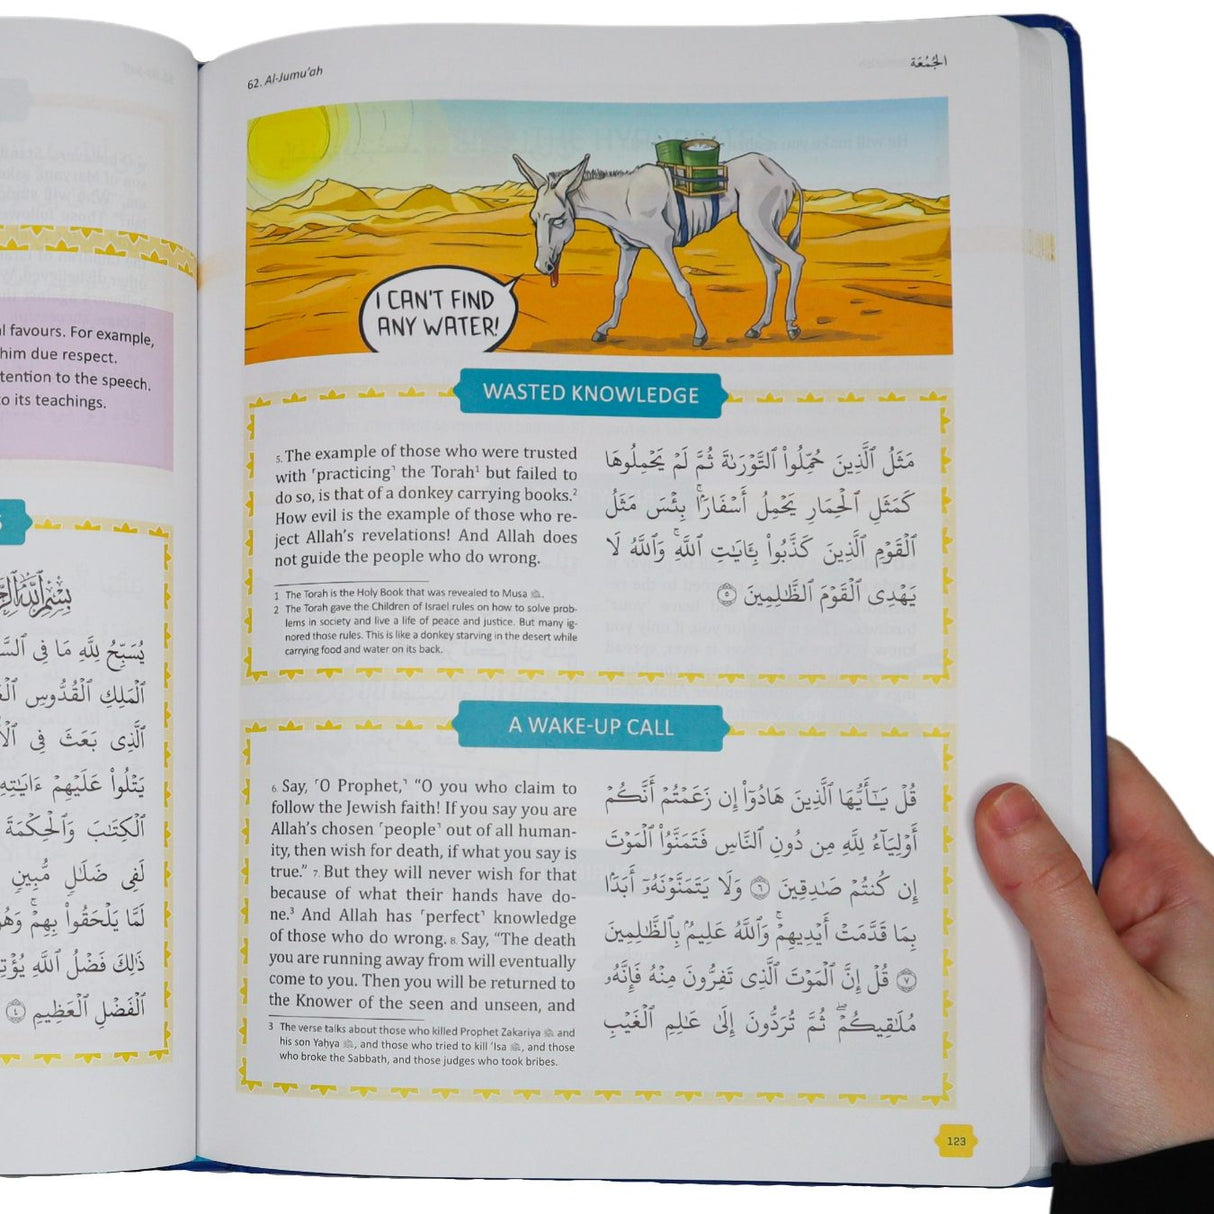 al favours. For example,
him due respect.
tention to the speech.
to its teachings.
S
يُسَبِّحُ لِلَّهِ مَا فِى
ٱلْمَلِكِ ٱلْقُدُّوسِ
ٱلَّذِى بَعَثَ فِى
يَتْلُوا۟ عَلَيْهِمْ ءَايَـٰتِهِ
ٱلْكِتَـٰبَ وَٱلْحِكْمَةَ
لَفِى ضَلَـٰلٍ مُّبِينٍ
لَمَّا يَلْحَقُوا۟ بِهِمْ ۚ وَهُوَ
ذَٰلِكَ فَضْلُ ٱللَّهِ
ٱلْفَضْلِ ٱلْعَظِيمِ ٤
62. Al-Jumu'ah
الجُمُعَة
I CAN'T FIND
ANY WATER!
WASTED KNOWLEDGE
5. The example of those who were trusted
with ˹practicing˺ the Torah1 but failed to
do so, is that of a donkey carrying books.2
How evil is the example of those who re-
ject Allah's revelations! And Allah does
not guide the people who do wrong.
1 The Torah is the Holy Book that was revealed to Musa ﷺ.
2 The Torah gave the Children of Israel rules on how to solve prob-
lems in society and live a life of peace and justice. But many ig-
nored those rules. This is like a donkey starving in the desert while
carrying food and water on its back.
مَثَلُ ٱلَّذِينَ حُمِّلُوا۟ ٱلتَّوْرَىٰةَ ثُمَّ لَمْ يَحْمِلُوهَا
كَمَثَلِ ٱلْحِمَارِ يَحْمِلُ أَسْفَارًۢا ۚ بِئْسَ مَثَلُ
ٱلْقَوْمِ ٱلَّذِينَ كَذَّبُوا۟ بِـَٔايَـٰتِ ٱللَّهِ ۚ وَٱللَّهُ لَا
يَهْدِى ٱلْقَوْمَ ٱلظَّـٰلِمِينَ ٥
A WAKE-UP CALL
6. Say, ˹O Prophet,˺ “O you who claim to
follow the Jewish faith! If you say you are
Allah's chosen ˹people˺ out of all human-
ity, then wish for death, if what you say is
true.” 7. But they will never wish for that
because of what their hands have do-
ne.3 And Allah has ˹perfect˺ knowledge
of those who do wrong. 8. Say, “The death
you are running away from will eventually
come to you. Then you will be returned to
the Knower of the seen and unseen, and
3 The verse talks about those who killed Prophet Zakariya ﷺ and
his son Yaḥya ﷺ, and those who tried to kill 'Isa ﷺ, and those
who broke the Sabbath, and those judges who took bribes.
قُلْ يَـٰٓأَيُّهَا ٱلَّذِينَ هَادُوٓا۟ إِن زَعَمْتُمْ أَنَّكُمْ
أَوْلِيَآءُ لِلَّهِ مِن دُونِ ٱلنَّاسِ فَتَمَنَّوُا۟ ٱلْمَوْتَ
إِن كُنتُمْ صَـٰدِقِينَ ٦ وَلَا يَتَمَنَّوْنَهُۥٓ أَبَدًۢا
بِمَا قَدَّمَتْ أَيْدِيهِمْ ۚ وَٱللَّهُ عَلِيمٌۢ بِٱلظَّـٰلِمِينَ
٧ قُلْ إِنَّ ٱلْمَوْتَ ٱلَّذِى تَفِرُّونَ مِنْهُ فَإِنَّهُۥ
مُلَـٰقِيكُمْ ۖ ثُمَّ تُرَدُّونَ إِلَىٰ عَـٰلِمِ ٱلْغَيْبِ
123